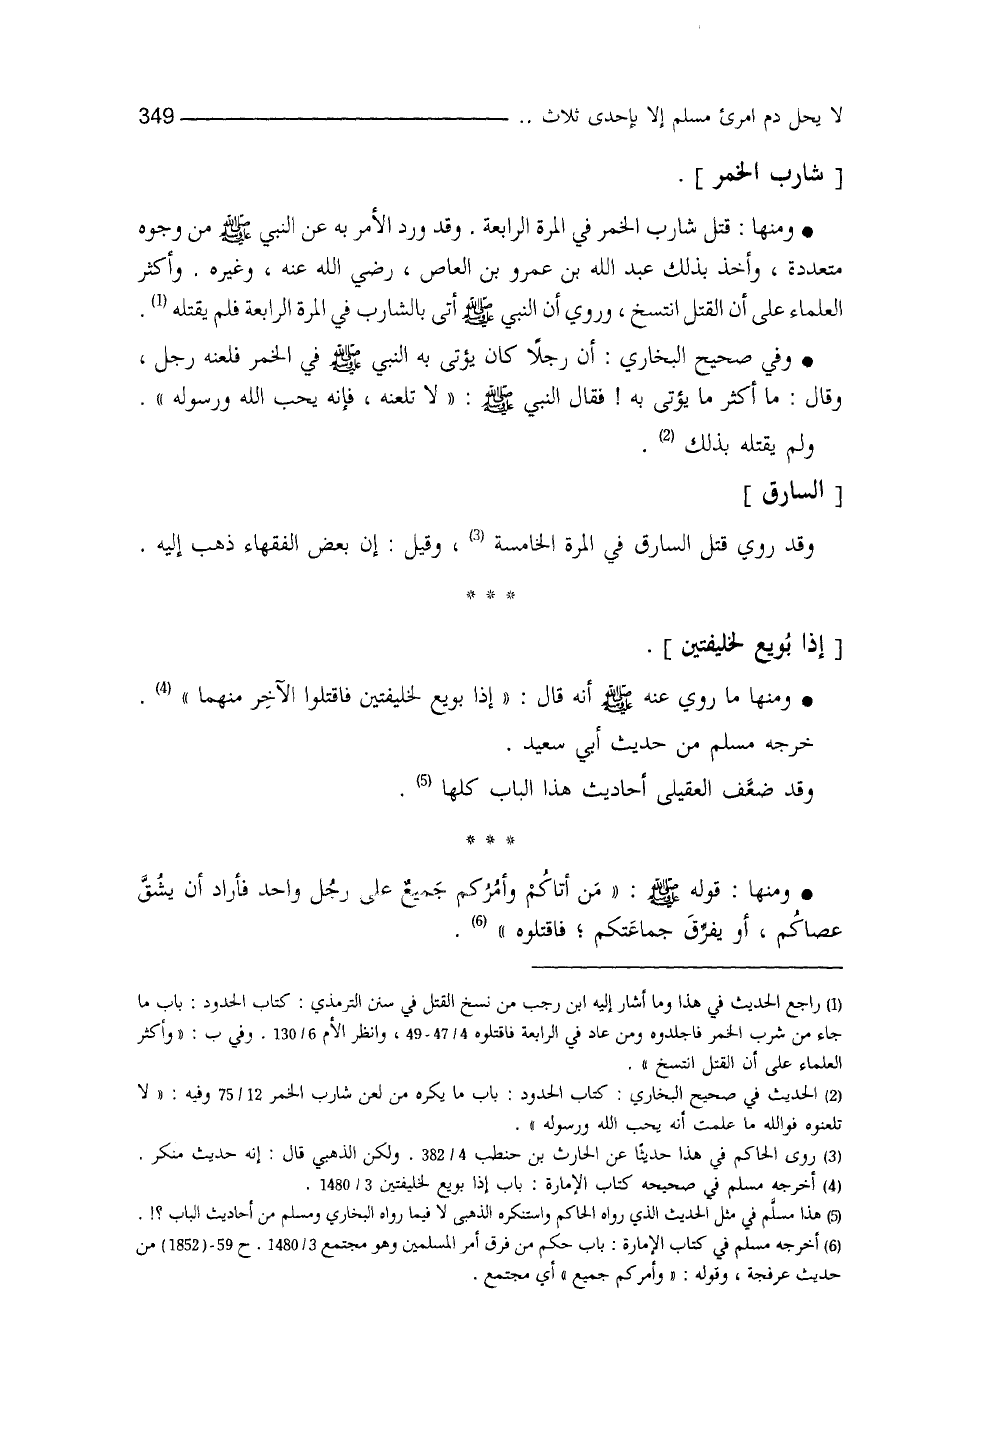 لا يحل دم امرئ مسلم إلا بإحدى ثلاث .. 349
[ شارب الخمر ] .
● ومنها : قتل شارب الخمر في المرة الرابعة . وقد ورد الأمر به عن النبي ﷺ من وجوه
متعددة ، وأخذ بذلك عبد الله بن عمرو بن العاص ، رضي الله عنه ، وغيره . وأكثر
العلماء على أن القتل انتسخ ، وروي أن النبي ﷺ أتى بالشارب في المرة الرابعة فلم يقتله (1) .
● وفي صحيح البخاري : أن رجلًا كان يؤتى به النبي ﷺ في الخمر فلعنه رجل ،
وقال : ما أكثر ما يؤتى به ! فقال النبي ﷺ : « لا تلعنه ، فإنه يحب الله ورسوله » .
ولم يقتله بذلك (2) .
[ السارق ]
وقد روي قتل السارق في المرة الخامسة (3) ، وقيل : إن بعض الفقهاء ذهب إليه .
* * *
[ إذا بُويع لخليفتين ] .
● ومنها ما روي عنه ﷺ أنه قال : « إذا بويع لخليفتين فاقتلوا الآخِر منهما » (4) .
خرجه مسلم من حديث أبي سعيد .
وقد ضعَّف العقيلى أحاديث هذا الباب كلها (5) .
* * *
● ومنها : قوله ﷺ : « مَن أتاكُمْ وأمْرُكم جَميعٌ على رجُل واحد فأراد أن يشُقَّ
عصاكُم ، أو يفرِّقَ جماعَتكم ؛ فاقتلوه » (6) .
(1) راجع الحديث في هذا وما أشار إليه ابن رجب من نسخ القتل في سنن الترمذي : كتاب الحدود : باب ما
جاء من شرب الخمر فاجلدوه ومن عاد في الرابعة فاقتلوه 4/ 47-49 ، وانظر الأم 6/ 130 . وفي ب : « وأكثر
العلماء على أن القتل انتسخ » .
(2) الحديث في صحيح البخاري : كتاب الحدود : باب ما يكره من لعن شارب الخمر 12/ 75 وفيه : « لا
تلعنوه فوالله ما علمت أنه يحب الله ورسوله » .
(3) روى الحاكم في هذا حديثًا عن الحارث بن حنطب 4/ 382 . ولكن الذهبي قال : إنه حديث منكر .
(4) أخرجه مسلم في صحيحه كتاب الإمارة : باب إذا بويع لخليفتين 3/ 1480 .
(5) هذا مسلَّم في مثل الحديث الذي رواه الحاكم واستنكره الذهبى لا فيما رواه البخاري ومسلم من أحاديث الباب ؟! .
(6) أخرجه مسلم في كتاب الإمارة : باب حكم من فرق أمر المسلمين وهو مجتمع 3/ 1480 . ح 59-(1852) من
حديث عرفجة ، وقوله : « وأمركم جميع » أي مجتمع .